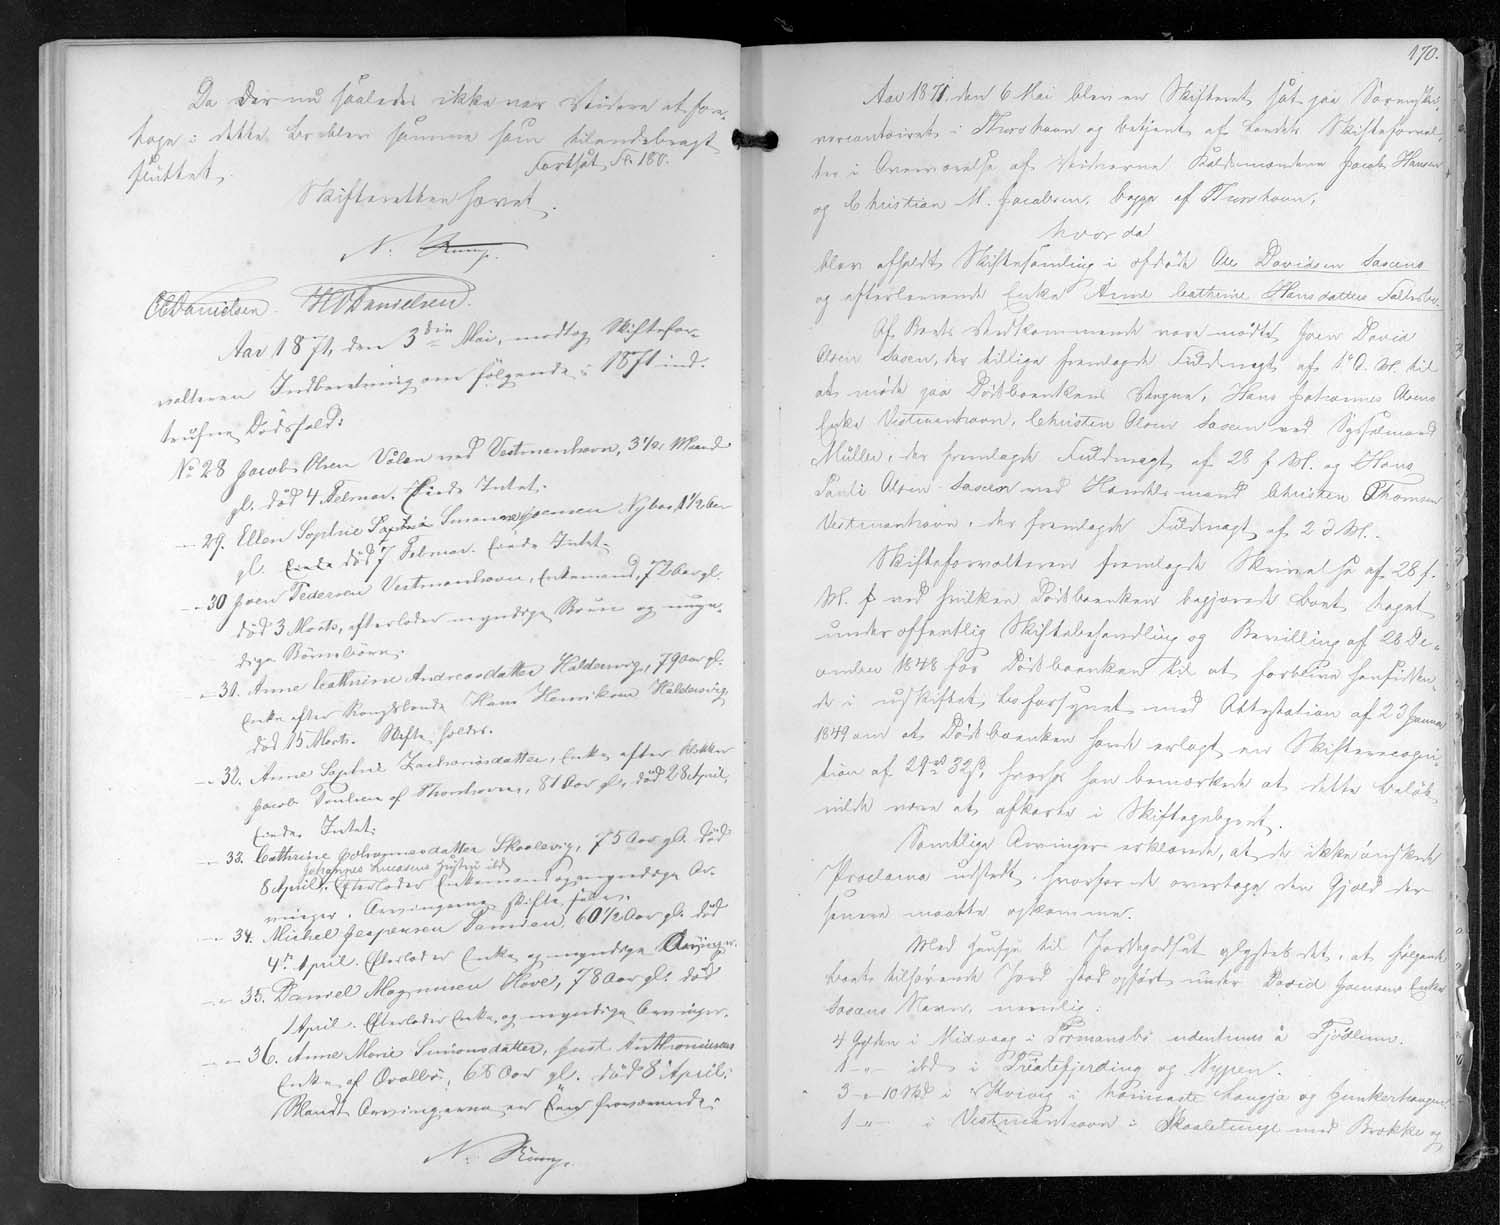 Da der nu saaledes ikke var Videre at fore-
tage i dette Bo blev samme som tilendebragt
sluttet.
Fortsat Fol. 180.
Skifteretten hævet.
N. Rump.
OCDanielsen. HODanielsen.
Aar 1871, den 3die Mai, modtog Skiftefor-
valteren Indberetning om følgende i 1871 ind-
trufne Dødsfald:
No 28 Jacob Olsen Válen ved Vestmanhavn, 3½ Maaned
gl. død 4 Februar. Eiede Intet.
- 29. Ellen Sophie Simonsen Nybo, 1½ Aar
gl. død 7 Februar. Eiede Intet.
- 30 Joen Pedersen Vestmanhavn, Enkemand, 72 Aar gl.
død 3 Marts, efterlader myndige Børn og umyn-
dige Børnebørn.
- 31. Anne Cathrine Andreasdatter Haldersvig, 79 Aar gl.
Enke efter Kongsbonde Hans Henriksen Haldersvig,
død 15 Marts. Skifte holdes.
- 32. Anne Sophie Zachariasdatter, Enke efter Klokker
Jacob Poulsen af Thorshavn, 81 Aar gl., død 28 April,
Eiede Intet.
- 33. Cathrine Johannesdatter Skaalevig, 75 Aar gl. død
Johannes Hustru ibd
8 April. Efterlader Enkemand og myndige Ar-
vinger. Arvingerne skifte selv.
- 34. Michel Jespersen Famien, 60½ Aar gl. død
4de April. Efterlader Enke og myndige Arvinger.
- 35. Daniel Magnussen Hove, 78 Aar gl. død
1 April. Efterlader Enke og myndige Arvinger.
- 36. Anne Marie Simonsdatter, Joen
Enke af Qvalbø, 68 Aar gl. død 8 April.
Blandt Arvingerne er Een fraværende.
N. Rump.
170.
Aar 1871 den 6 Mai blev en Skifteret sat paa Sorenskri-
vercontoiret i Thorshavn og betjent af Landets Skifteforval-
ter i Overværelse af Vidnerne Jacob Hansen
og Christian M. Jacobsen, begge af Thorshavn,
hvor da
blev afholdt Skiftesamling i afdøde Ole Davidsen Saxens
og efterlevende Enke Anne Cathrine Hansdatters Fællesbo.
Af Boets Vedkommende vare mødte Joen David
Olsen Saxen, der tillige fremlagde Fuldmagt af 1 d. M. til
at møde paa Dødsboenkens Vegne, Hans Johannes Olsens
Enke Vestmanhavn, Christen Olsen Saxen ved Sysselmand
Müller, der fremlagde Fuldmagt af 28 f. M. og Hans
Pauli Olsen Saxen ved Handelsmand Christen Thomsen
Vestmanhavn, der fremlagde Fuldmagt af 2 d. M.
Skifteforvalteren fremlagde Skrivelse af 28 f.
M. ved hvilken Dødsboenken begjærede Boet taget
under offentlig Skiftebehandling og Bevilling af 28 De-
cember 1848 for Dødsboenken til at forblive hensidden-
de i uskiftet Bo forsynet med Attestation af 23 Januar
1849 om at Dødsboenken havde erlagt en Skifterecogni-
tion af 29 rd 32 ß, hvorfor han bemærkede at dette Beløb
vilde være at afkorte i Skiftegebyret.
Samtlige Arvinger erklærede, at de ikke ønskede
Proclama udstedt, hvorfor de overtoge den Gjæld der
senere maatte opkomme.
Med Hensyn til Jordegodset oplystes det, at følgende
Boet tilhørende Jord stod opført under David Joensens Enkes
Saxens Navn, nemlig:
4 Gylden i Midvaag i Pormansbø udentuns á Fjødlum.
1 - " - ibd i Prestefjerding og Nypen.
3 - " - 10 Skd i Kvivig i heimaste Haugja og Junkerhaugen
1 - " - i Vestmanhavn i Skaaletunge med Brekke og